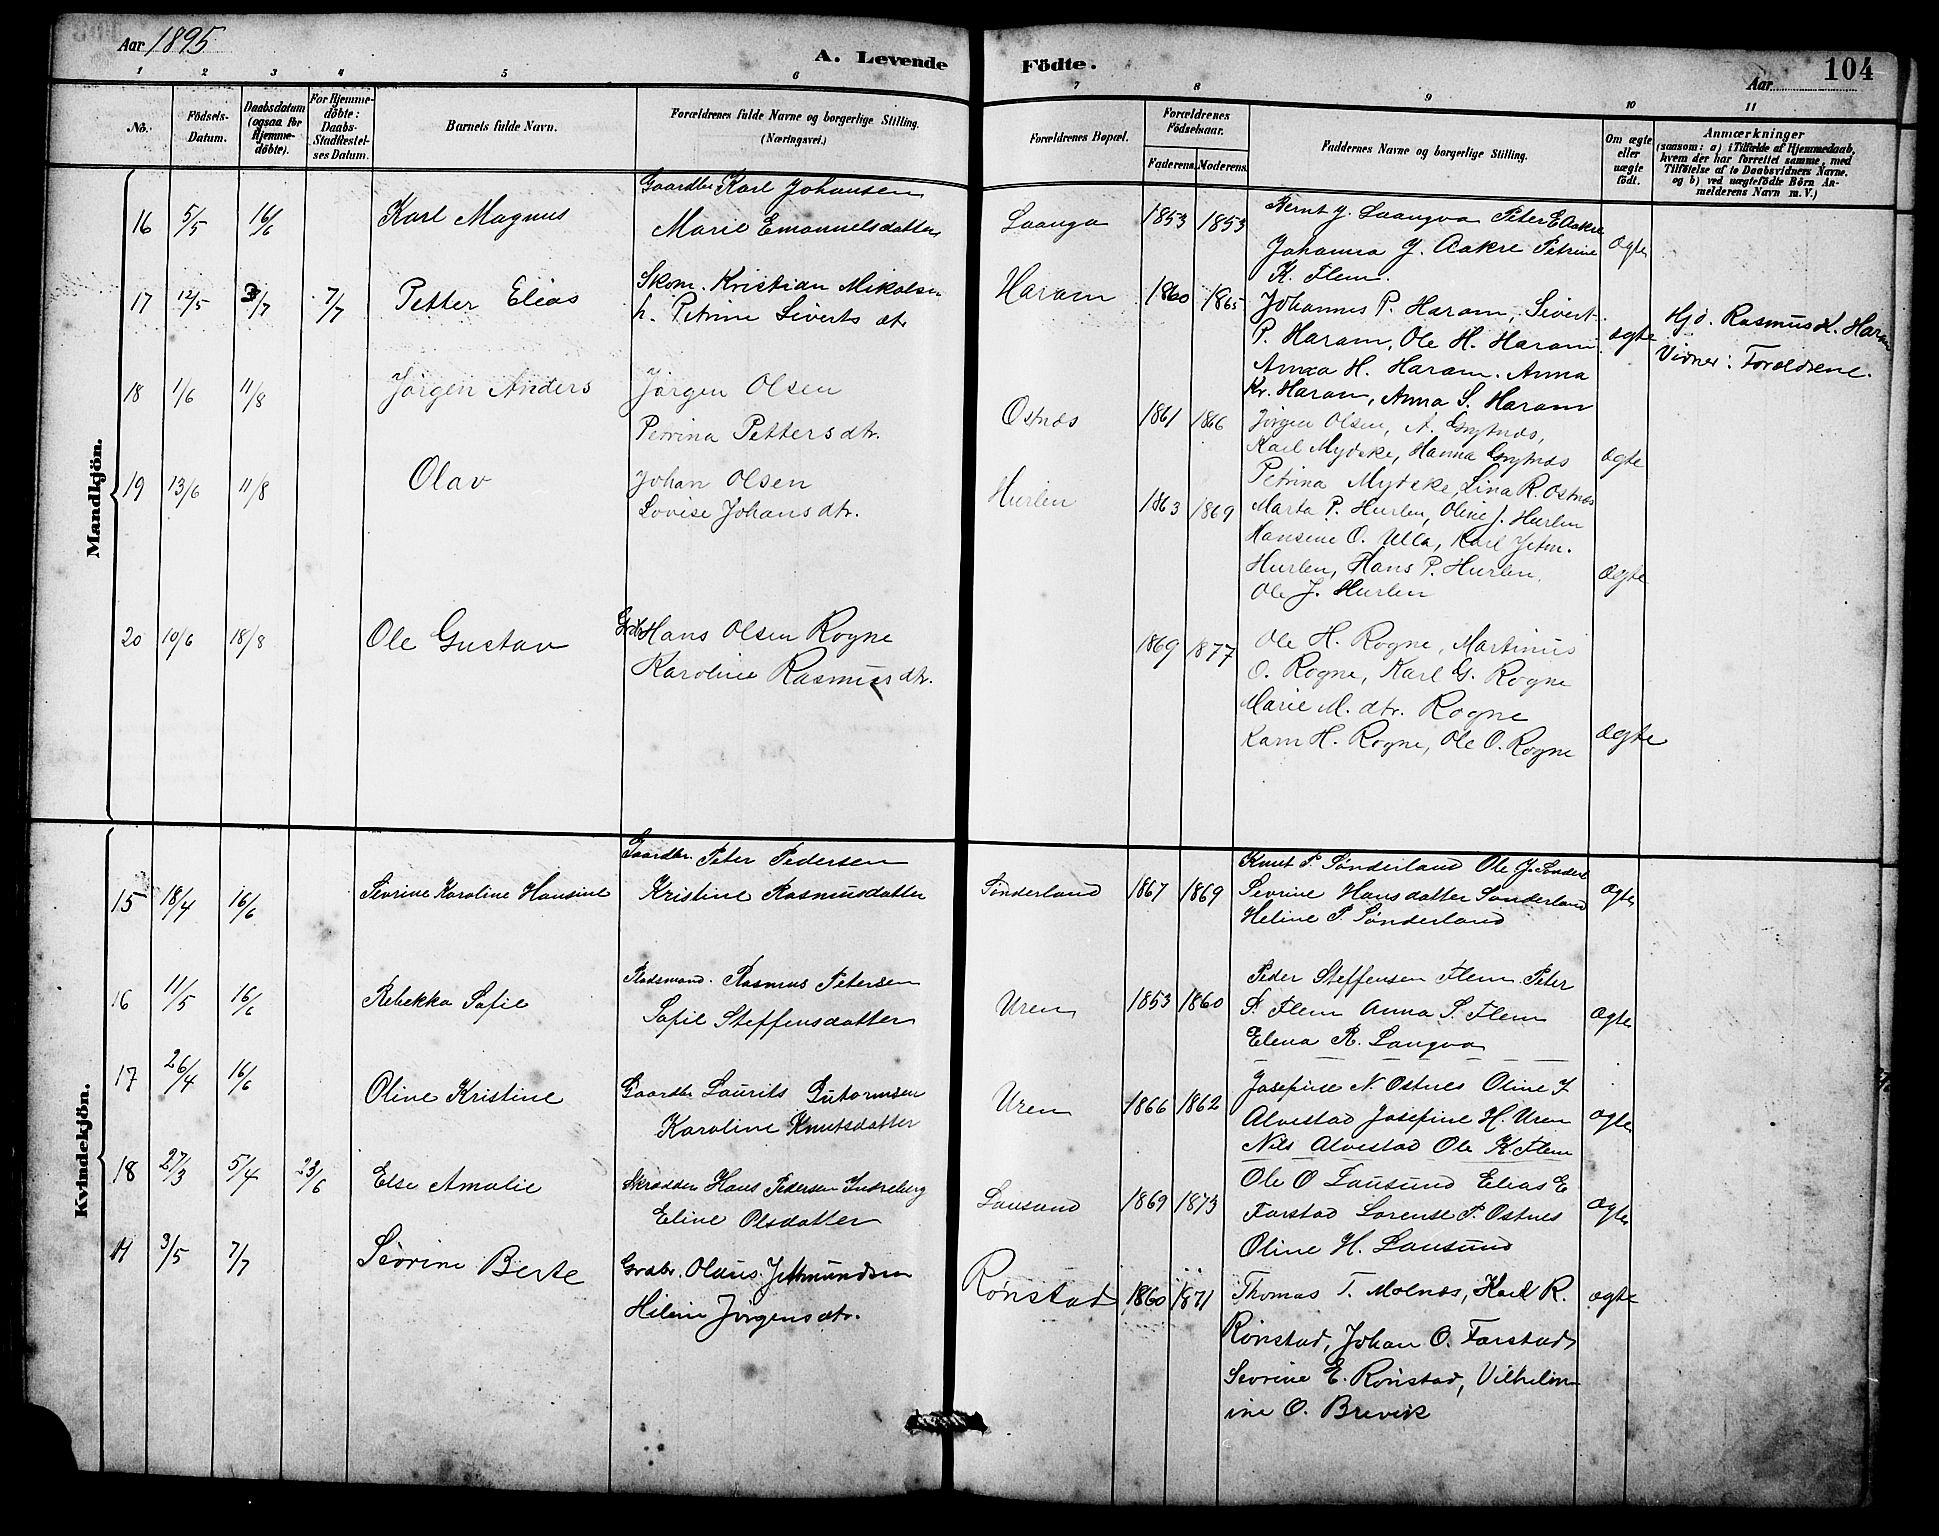 Aar 1895
A. Levende Födte.
Aar
104
1 2 3 4 5 6 7 8 9 10 11
No.
Födsels-Datum.
Daabsdatum (ogsaa for Hjemme-döbte).
For Hjemme-döbte: Daabs-Stadfæstel-ses Datum.
Barnets fulde Navn.
Forældrenes fulde Navne og borgerlige Stilling. (Næringsvei.)
Forældrenes Bopæl.
Forældrenes Födselsaar.
Faderens. Moderens.
Faddernes Navne og borgerlige Stilling.
Om ægte eller uægte födt.
Anmærkninger
(saasom: a) i Tilfælde af Hjemmedaab,
hvem der har forrettet samme, med
Tilföielse af to Daabsvidners Navne.
og b) ved uægtefödte Börn An-
melderens Navn m. V.)
Mandkjön.
16 5/5 16/6 Karl Magnus
Gaardbr Karl Johansen
Marie Emanuelsdatter
Laanga 1853 1853
Bernt J. Laangva Peter E Aakre
Johanna J. Aakre Petrine
K. Flem
ægte
17 12/5 3/7 7/7 Petter Elias
Skom. Kristian Mikalsen
h. Petrine Siverts dt
Haram 1860 1865
Johannes P. Haram, Sivert
P. Haram, Ole H. Haram
Anna H. Haram. Anna
Kr. Haram, Anna S. Haram
ægte
Hjd. Rasmus K. Haram
Vidner: Forældrene.
18 1/6 11/8 Jørgen Anders
Jørgen Olsen
Petrina Petters dtr.
Ostnæs 1861 1866
Jörgen Olsen, A. Grytnæs,
Karl Mydske, Hanna Grytnæs
Petrina Mydske, Lina R. Ostnæs
ægte
19 13/6 11/8 Olav
Johan Olsen
Lovise Johans dtr.
Hurlen 1863 1869
Marta P. Hurlen, Oline J. Hurlen
Hansine O. Ulla, Karl Jetm.
Hurlen, Hans P. Hurlen,
Ole J. Hurlen
ægte
20 10/6 18/8 Ole Gustav
Grdb Hans Olsen Rogne
Karoline Rasmus dtr.
1869 1877
Ole H. Rogne, Martinus
O. Rogne, Karl G. Rogne
Marie M. dtr. Rogne
Karn H. Rogne, Ole O. Rogne
ægte
Kvindekjön.
15 18/4 16/6 Sevrine Karoline Hansine
Gaardbr. Peter Pedersen
Kristine Rasmusdatter
Sønderland 1867 1869
Knut P. Sønderland Ole J. Sønderl
Sevrine Hansdatter Sønderland
Heline P. Sønderland
ægte
16 11/5 16/6 Rebekka Sofie
Pladsmand. Rasmus Petersen
Sofie Steffensdatter
Uren 1853 1860
Peder Steffensen Flem Peter
S. Flem Anna S. Flem
Elena R. Langva
ægte
17 26/4 16/6 Oline Kristine
Gaardbr Laurits Gutormsen
Karoline Knutsdatter
Uren 1866 1862
Josefine N. Ostnes Oline I
Alvestad Josefine H. Uren
Nils Alvestad Ole K. Flem
ægte
18 27/3 5/4 23/6 Else Amalie
Skrædder Hans Pedersen Indreberg
Eline Olsdatter
Lausund 1869 1873
Ole O Lausund Elias E
Farstad Lorense P. Ostnes
Oline H. Lausund
ægte
3/5 7/7 Sevrine Berte
Grdbr. Olaus Jetmundsen
Heline Jörgensdtr.
Rønstad 1860 1871
Thomas T. Molnæs, Karl R.
Rönstad, Johan O. Farstad,
Sevrine E. Rönstad, Vilhelm-
ine O. Brevik
ægte